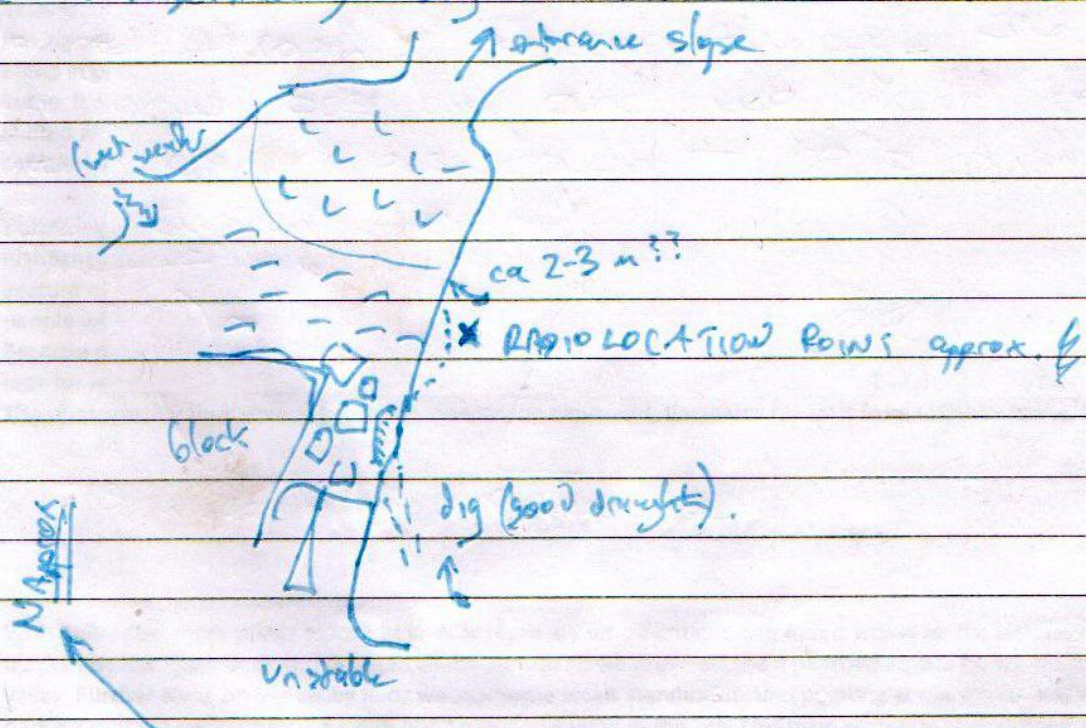 entrance slope
(wet weather
ca 2-3 m ??
X RADIO LOCATION POINT approx.
block
dig (good draught).
N APPROX
unstable